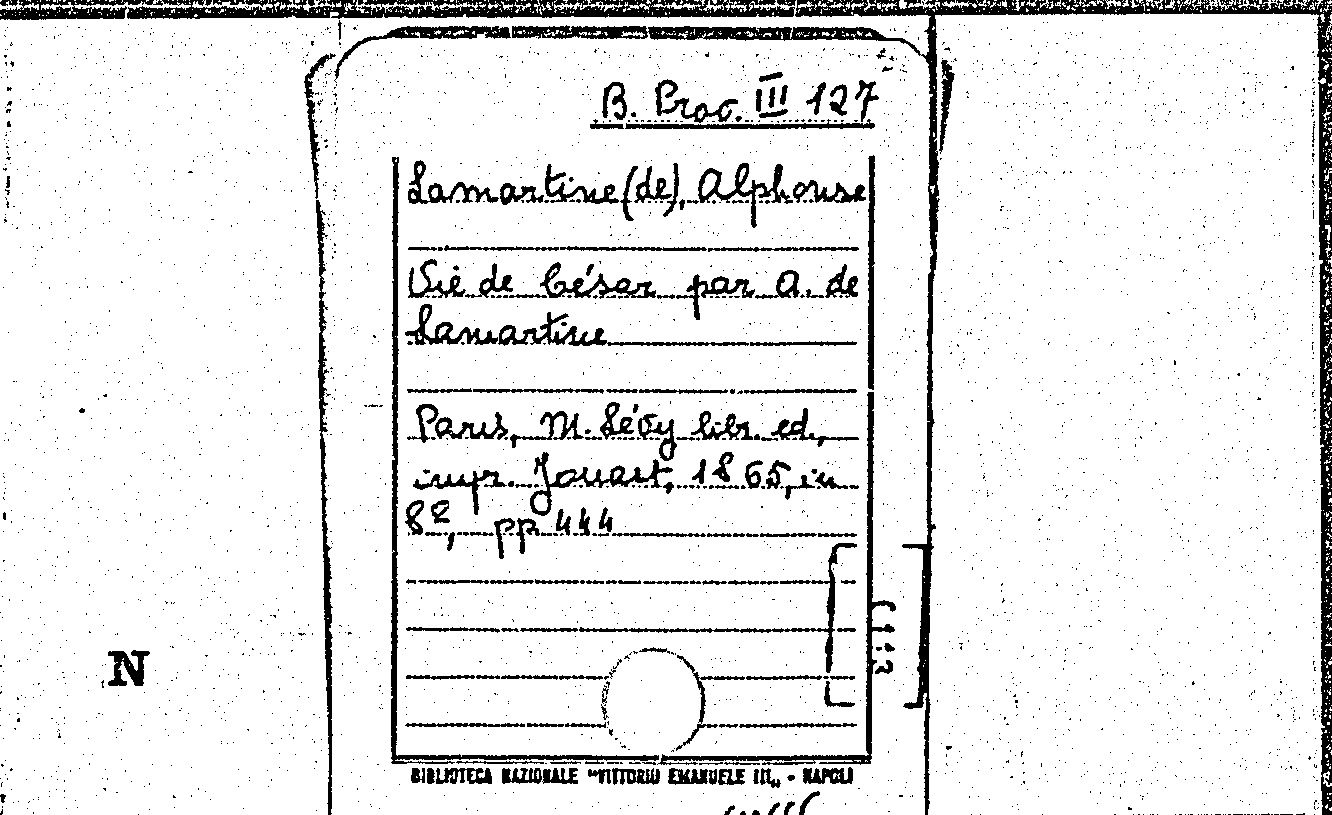 B. Prov. III 127
Lamartine (de), Alphonse
Vie de César par A. de
Lamartine
Paris, M. Lévy libr. ed.,
impr. Jouast, 1865, in
8º, pp 444
N
BIBLIOTECA NAZIONALE "VITTORIO EMANUELE III" - NAPOLI